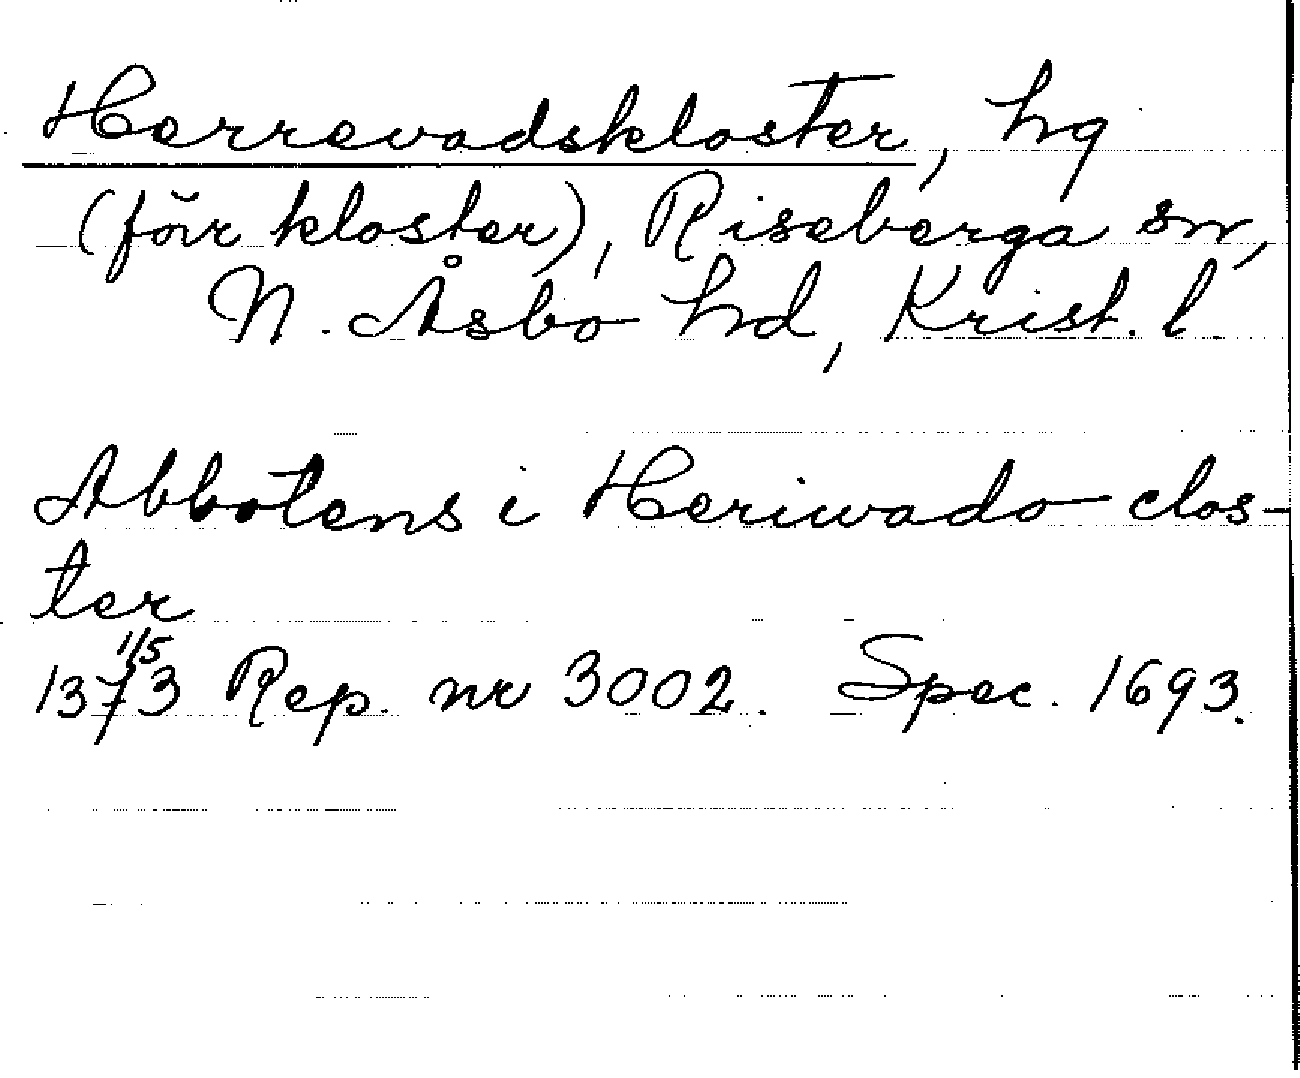 Herrevadskloster, hg
(förr kloster), Riseberga sn,
N. Åsbo hd, Krist. l.
Abbotens i Heriwado clos-
ter
1373 1/5 Rep. nr 3002. Spec. 1693.